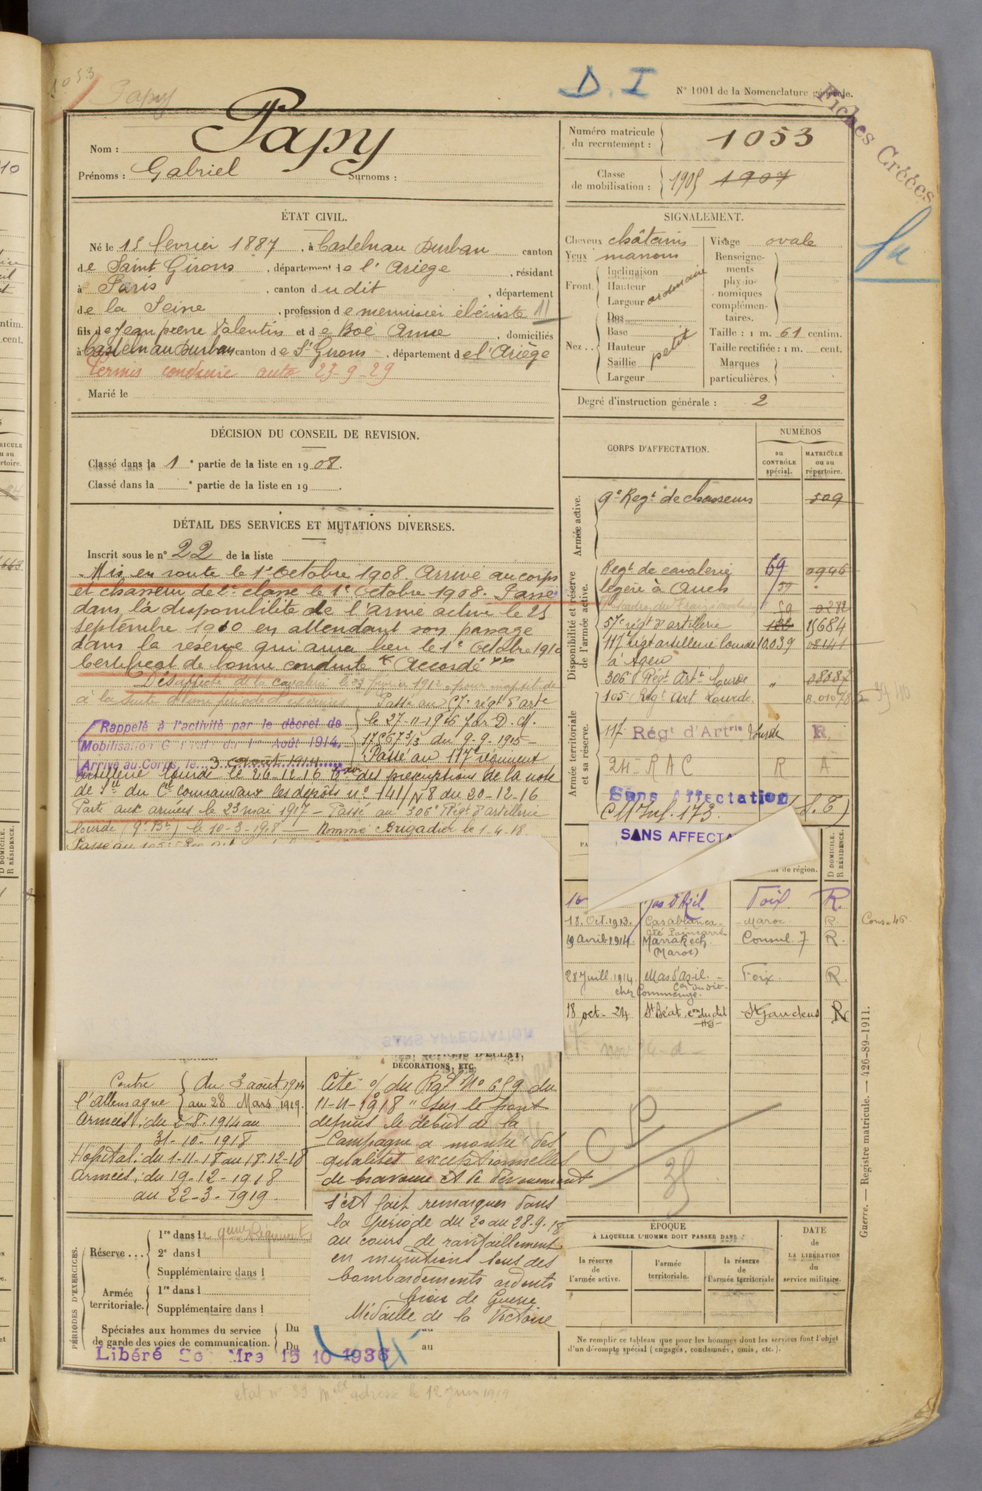 1053
Papy
D. I
N° 1001 de la Nomenclature générale.
Fiches Créées
Nom : Papy
Prénoms : Gabriel Surnoms :
Numéro matricule du recrutement : 1053
Classe de mobilisation : 1905 1907
ÉTAT CIVIL.
Né le 15 février 1887, à Castelnau Durban canton
de Saint Girons, département de l'Ariège, résidant
à Paris, canton du dit, département
de la Seine, profession de menuisier ébéniste 11
fils de Jean pierre Valentin et de Boé Anne, domiciliés
à Castelnau Durban canton de St Girons, département de l'Ariège
Permis conduire auto 23-9-29
Marié le
SIGNALEMENT.
Cheveux châtains
Yeux marrons
Front. Inclinaison
Hauteur
Largeur ordinaire
Nez. Dos
Base
Hauteur
Saillie petit
Largeur
Visage ovale
Renseignements physionomiques complémentaires.
Taille : 1 m. 61 centim.
Taille rectifiée : 1 m. cent.
Marques particulières.
Degré d'instruction générale : 2
DÉCISION DU CONSEIL DE REVISION.
Classé dans la 1e partie de la liste en 1908.
Classé dans la e partie de la liste en 19
DÉTAIL DES SERVICES ET MUTATIONS DIVERSES.
Inscrit sous le n° 22 de la liste
Mis en route le 1er Octobre 1908. Arrivé au corps
et chasseur de 2e classe le 1er Octobre 1908. Passé
dans la disponibilité de l'armée active le 25
septembre 1910 en attendant son passage
dans la réserve qui aura lieu le 1er Octobre 1910
Certificat de bonne conduite "Accordé"
Désaffecté de la cavalerie le 23 juin 1912 pour inaptitude
à la suite d'une période d'exercices. Passé au 57e régt d'artie
Rappelé à l'activité par le décret de
Mobilisation Générale du 1er Août 1914.
Arrivé au Corps, le 3 août 1914
le 27-11-1915 par D. M.
17567 3/3 du 9-9-1915
Passé au 117e régiment
artillerie lourde le 26-12-16 des prescriptions de la note
de du Ct commandant les dépôts n° 141/N8 du 20-12-16
Parti aux armées le 23 mai 1917 - Passé au 306e Régt d'artillerie
lourde (9e Bie) le 10-3-1918 - Nommé Brigadier le 1-4-18
CORPS D'AFFECTATION.
NUMÉROS
au CONTRÔLE spécial.
MATRICULE ou au répertoire.
Armée active.
9e Regt de chasseurs 509
Disponibilité et réserve de l'armée active.
Regt de cavalerie 69 0996
légère à Auch
57e régt d'artillerie 15684
117e régt artillerie lourde 10.039 08141
à Agen
306e Régt Artie Lourde " 08887
105e Régt Art Lourde
Armée territoriale et sa réserve.
117 Régt d'Artie Lourde R
24 - R A C R A
Sans Affectation
SANS AFFECTA
de région.
D DOMICILE. R RÉSIDENCE.
Mas d'Azil Foix. R.
18. Oct. 1913. Casablanca Maroc R
19 avril 1914. Marrakech (Maroc) Consul. 7 R.
28 Juill. 1914 Mas d'azil - Foix. R
chez Commenge.
18 oct - 24 St Béat St Gaudens R
Cons. 46
SANS AFFECTATION
DÉCORATIONS, ETC.
Contre l'Allemagne { du 3 août 1914
au 28 Mars 1919.
Armées : du 2-8-1914 au
31-10-1918
Hôpital : du 1-11-18 au 18-12-18
Armées : du 19-12-1918
au 22-3-1919
Cité o/ du Rgt N° 659 du
11-11-1918 "Sur le front
depuis le début de la
Campagne a montré des
qualités exceptionnelles
de bravoure et de dévouement
s'est fait remarquer dans
la période du 20 au 28-9-18
au cours de ravitaillements
en munitions sous des
bombardements ardents
Croix de Guerre
Médaille de la Victoire
PÉRIODES D'EXERCICES.
Réserve ... 1re dans le
2e dans l
Supplémentaire dans l
Armée territoriale. 1re dans l
Supplémentaire dans l
Spéciales aux hommes du service de garde des voies de communication. Du au
Du au
Libéré Mre 15 10 1936
ÉPOQUE
À LAQUELLE L'HOMME DOIT PASSER DANS :
la réserve de l'armée active.
l'armée territoriale.
la réserve de l'armée territoriale
DATE de LA LIBÉRATION du service militaire.
Ne remplir ce tableau que pour les hommes dont les services font l'objet
d'un décompte spécial (engagés, condamnés, omis, etc.).
Guerre. — Registre matricule. — 426-89-1911.